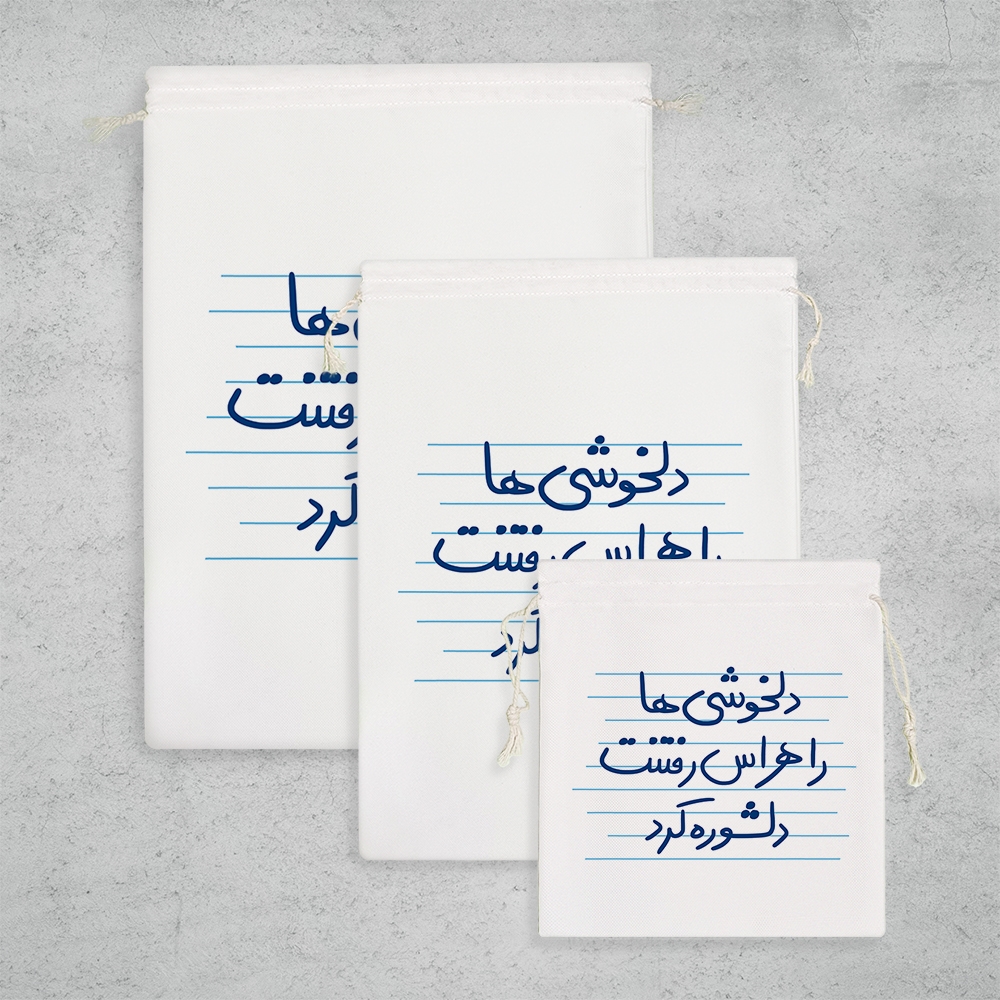 ها
رفتنت
کرد
دلخوشی ها
را هراس رفتنت
کرد
دلخوشی ها
را هراس رفتنت
دلشوره کرد